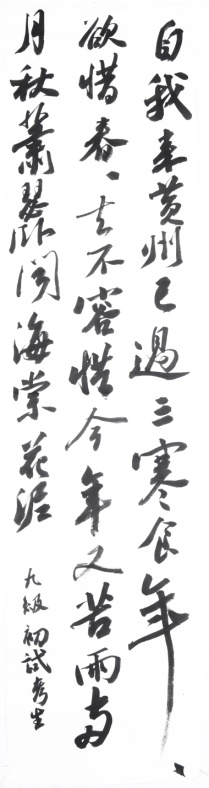 自我来黄州已過三寒食年ゝ
欲惜春ゝ去不容惜今年又苦雨両
月秋蕭瑟卧聞海棠花泥
九级初試考生